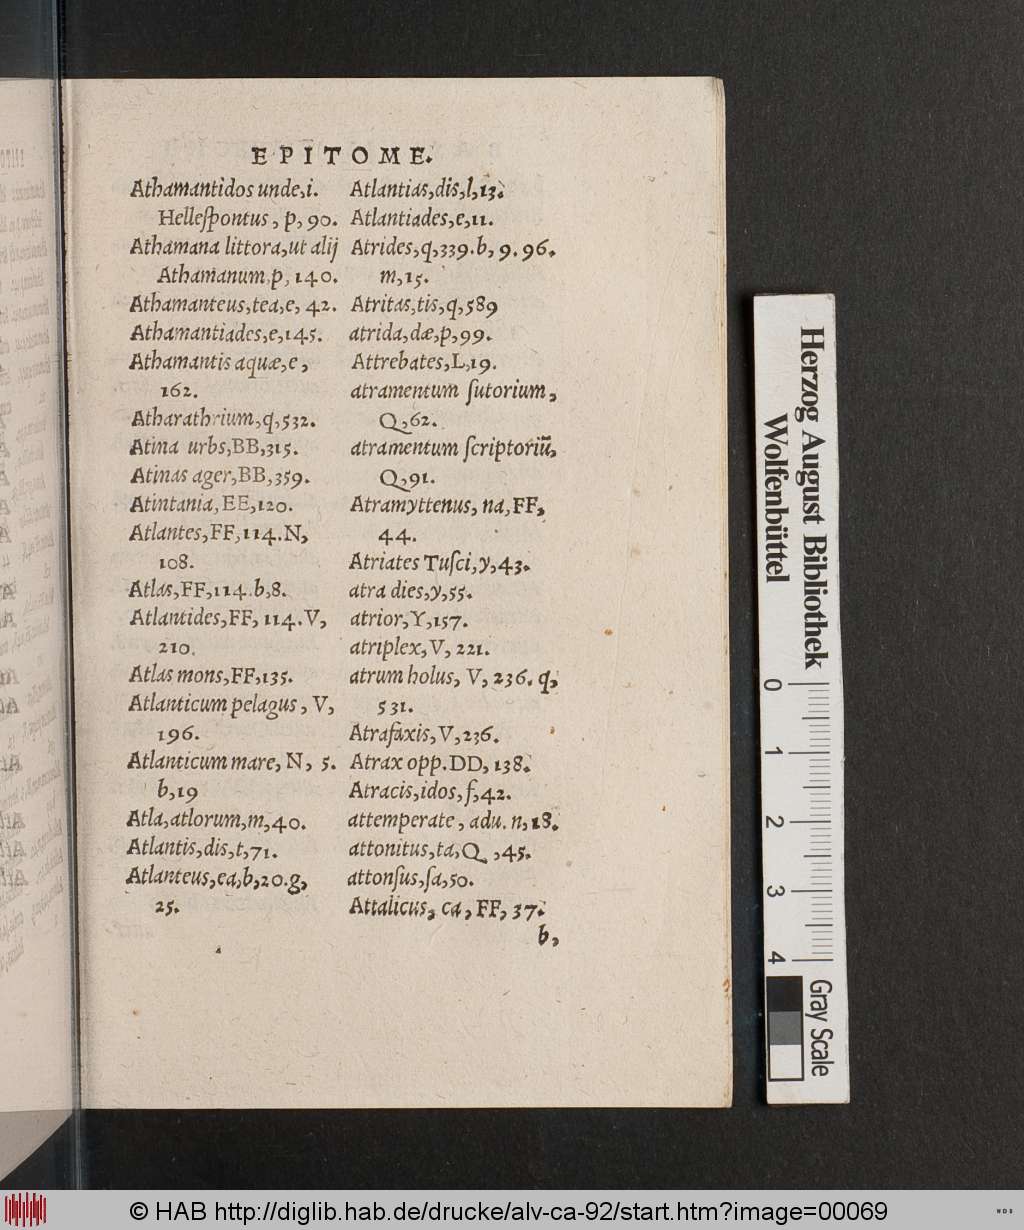 EPITOME.
Athamantidos unde, i.
Helleſpontus, p, 90.
Athamana littora, ut alij
Athamanum, p, 140.
Athamanteus, tea, e, 42.
Athamantiades, e, 145.
Athamantis aquæ, e,
162.
Atharathrium, q, 532.
Atina urbs, BB, 315.
Atinas ager, BB, 359.
Atintania, EE, 120.
Atlantes, FF, 114. N,
108.
Atlas, FF, 114. b, 8.
Atlantides, FF, 114. V,
210.
Atlas mons, FF, 135.
Atlanticum pelagus, V,
196.
Atlanticum mare, N, 5.
b, 19
Atla, atlorum, m, 40.
Atlantis, dis, t, 71.
Atlanteus, ea, b, 20. g,
25.
Atlantias, dis, l, 13.
Atlantiades, e, 11.
Atrides, q, 339. b, 9. 96.
m, 15.
Atritas, tis, q, 589
atrida, dæ, p, 99.
Attrebates, L, 19.
atramentum ſutorium,
Q, 62.
atramentum ſcriptoriū,
Q, 91.
Atramyttenus, na, FF,
44.
Atriates Tuſci, y, 43.
atra dies, y, 55.
atrior, Y, 157.
atriplex, V, 221.
atrum holus, V, 236. q,
531.
Atrafaxis, V, 236.
Atrax opp. DD, 138.
Atracis, idos, f, 42.
attemperate, adu. n, 18.
attonitus, ta, Q, 45.
attonſus, ſa, 50.
Attalicus, ca, FF, 37.
b,
Herzog August Bibliothek
Wolfenbüttel
0 1 2 3 4
Gray Scale
© HAB http://diglib.hab.de/drucke/alv-ca-92/start.htm?image=00069